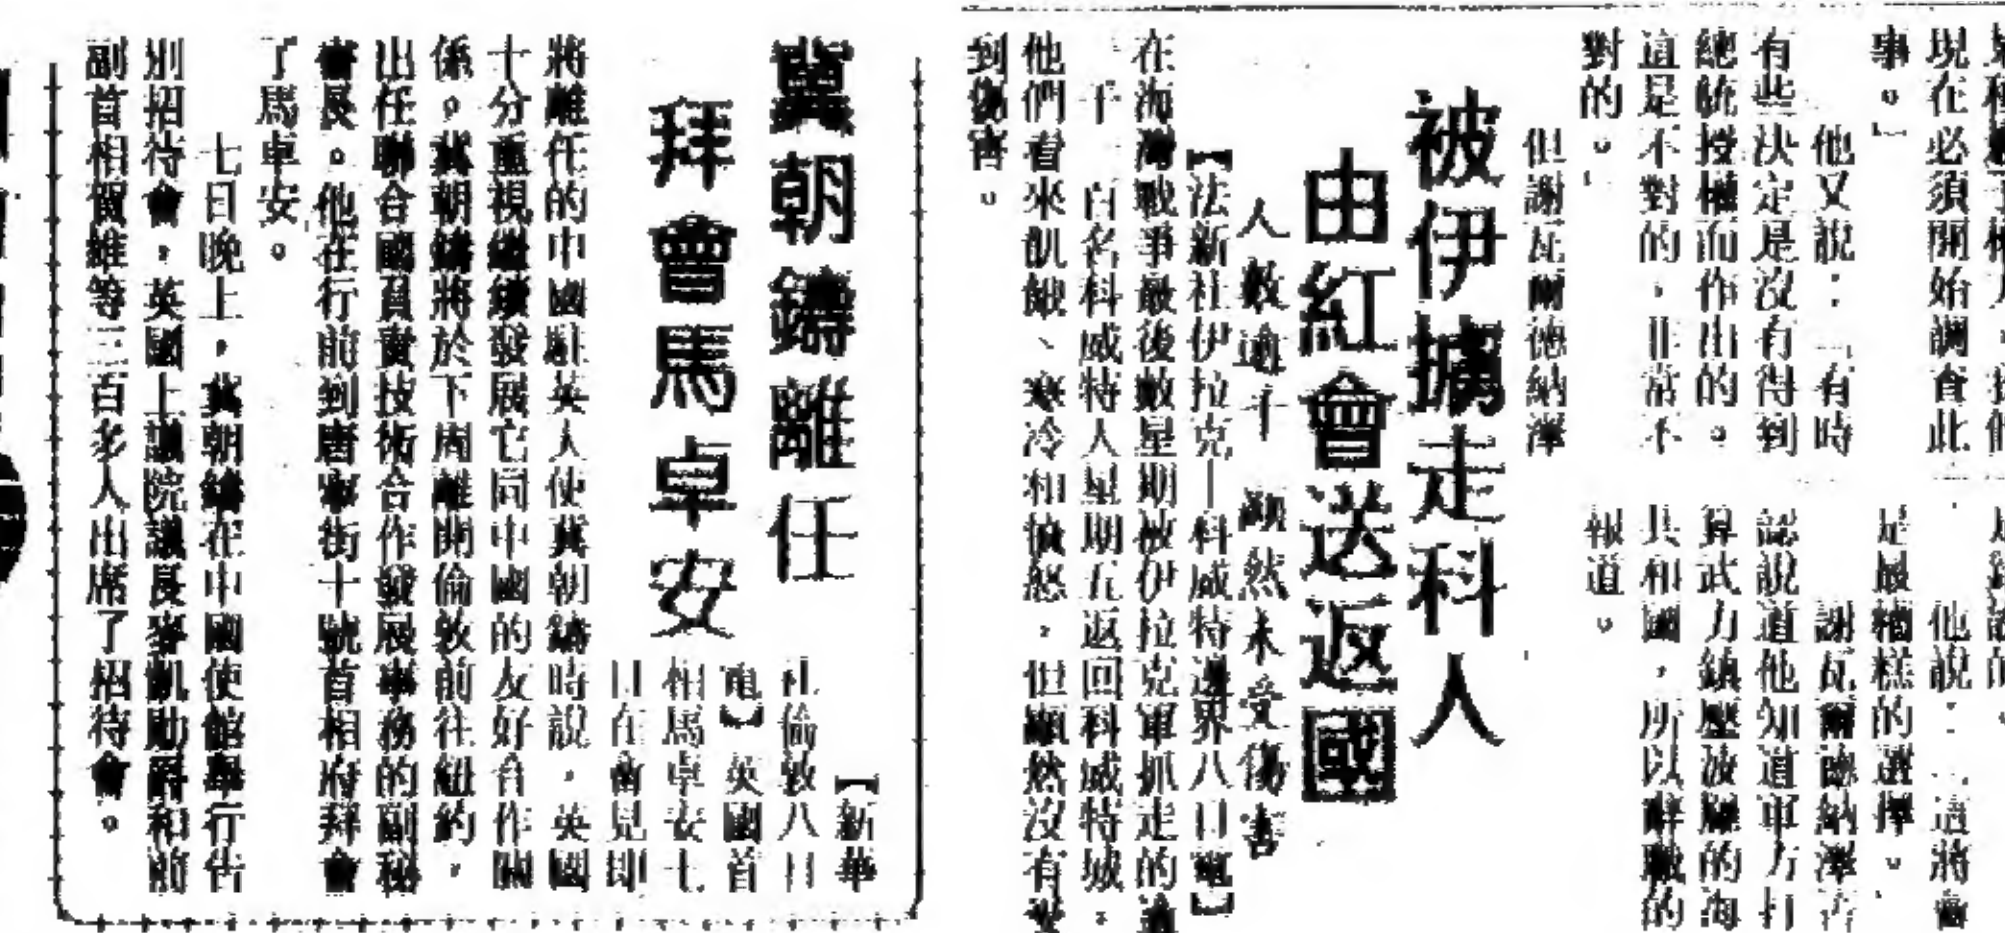 現在必須開始調查此
事。」
他又說：「有時
有些決定是沒有得到
總統授權而作出的。
這是不對的，非常不
對的。」
但謝瓦爾德納澤
他說：「這將會
是最糟糕的選擇。」
謝瓦爾德納澤否
認說道他知道軍方打
算武力鎮壓波羅的海
共和國，所以辭職的
報道。
被伊擄走科人
由紅會送返國
人數逾千 顯然未受傷害
【法新社伊拉克—科威特邊界八日電】
在海灣戰爭最後數星期被伊拉克軍抓走的逾
千百名科威特人星期五返回科威特城。
他們看來飢餓、寒冷和憤怒，但顯然沒有受
到傷害。
冀朝鑄離任
拜會馬卓安
【新華
社倫敦八日
電】英國首
相馬卓安七
日在會見即
將離任的中國駐英大使冀朝鑄時說，英國
十分重視繼續發展它同中國的友好合作關
係。冀朝鑄將於下周離開倫敦前往紐約，
出任聯合國負責技術合作發展事務的副秘
書長。他在行前到唐寧街十號首相府拜會
了馬卓安。
七日晚上，冀朝鑄在中國使館舉行告
別招待會，英國上議院議長麥凱勛爵和前
副首相賀維等三百多人出席了招待會。